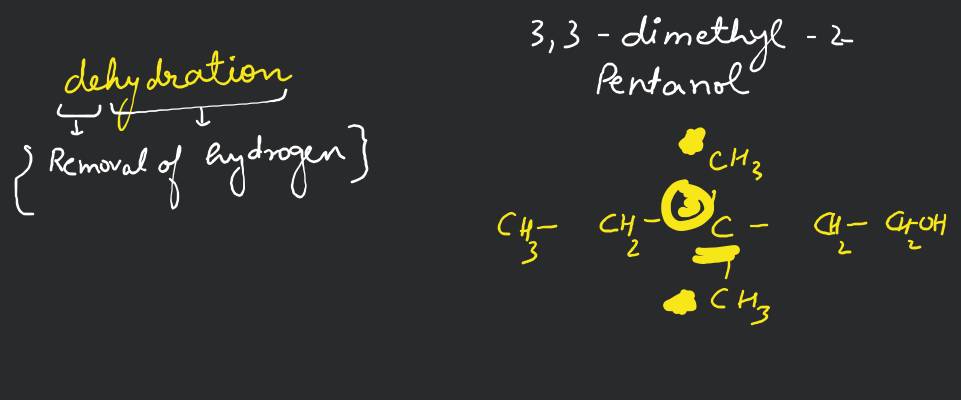 dehydration
{ Removal of hydrogen }
3,3 - dimethyl - 2
Pentanol
CH3
CH3 - CH2 - 3 C - CH2 - CH2OH
CH3